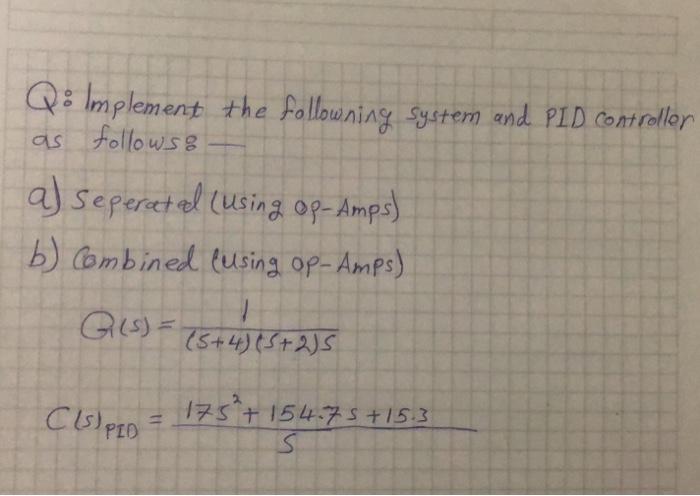 Q: Implement the followning system and PID controller
as follows: —
a) Seperated (using op-Amps)
b) Combined (using op-Amps)
G(s) = 1 / (s+4)(s+2)s
C(s)PID = 17s² + 154.7s + 15.3 / s